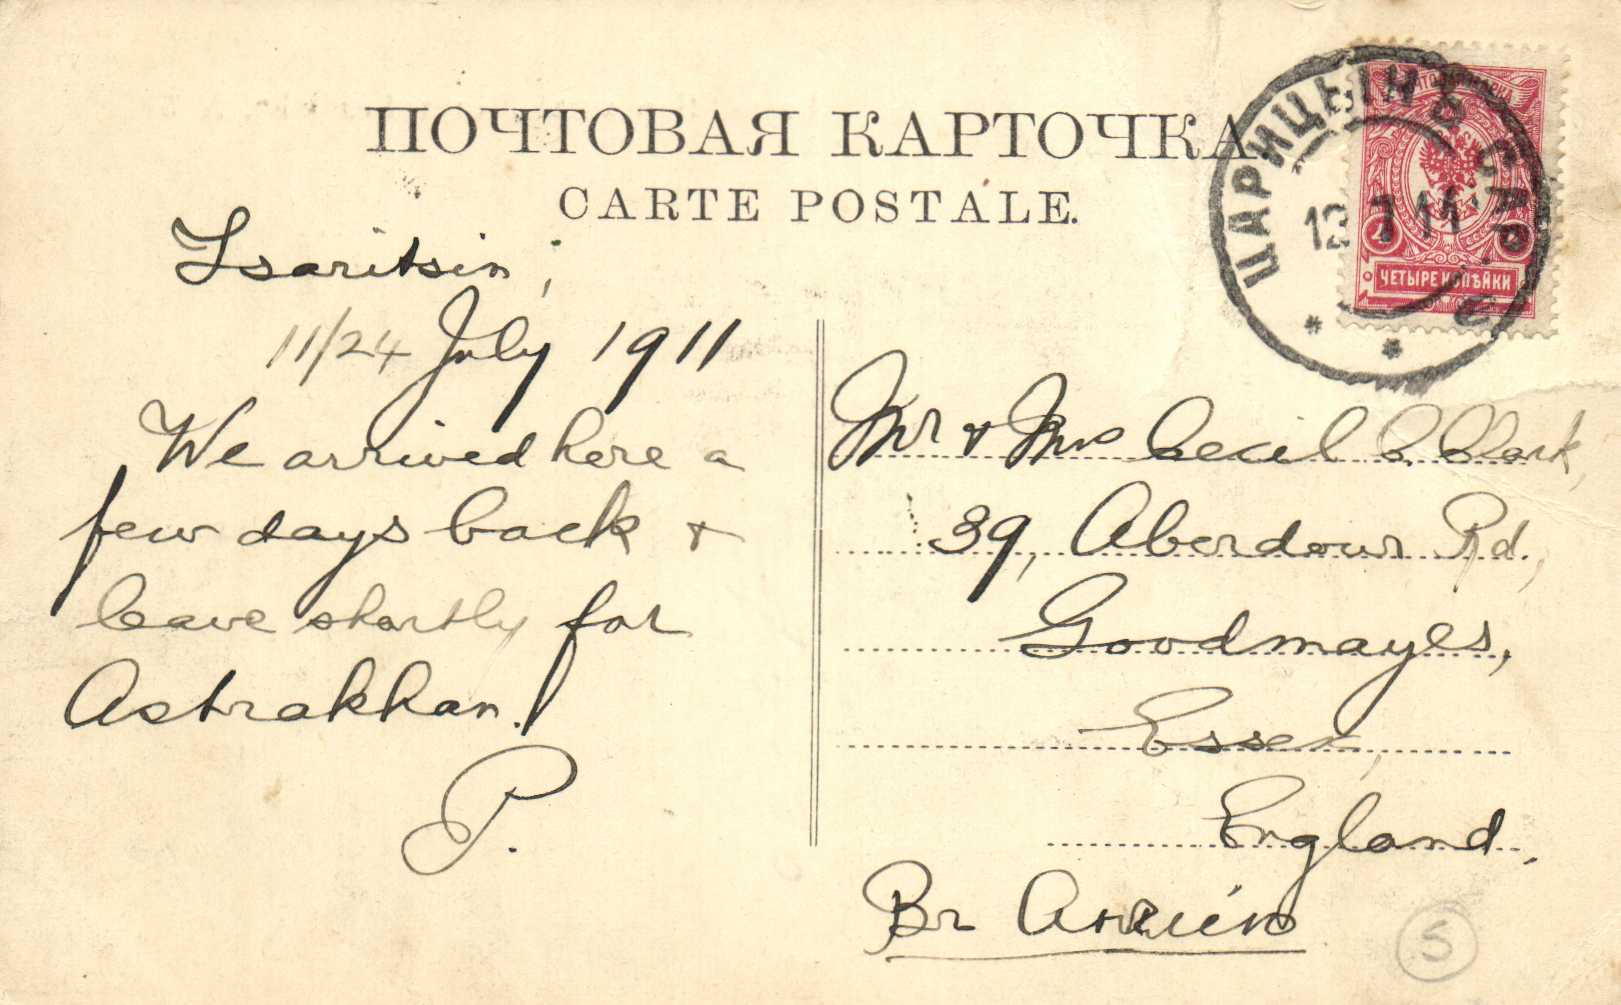 ПОЧТОВАЯ КАРТОЧКА
CARTE POSTALE.
ЦАРИЦЫНЪ САР.
12 7 11
ЧЕТЫРЕ КОПѢЙКИ
Tsaritsin,
11/24 July 1911
We arrived here a
few days back &
leave shortly for
Astrakhan.
P.
Mr & Mrs Cecil C. Clark,
39, Aberdour Rd.,
Goodmayes,
Essex,
England.
Вг Англiю
5